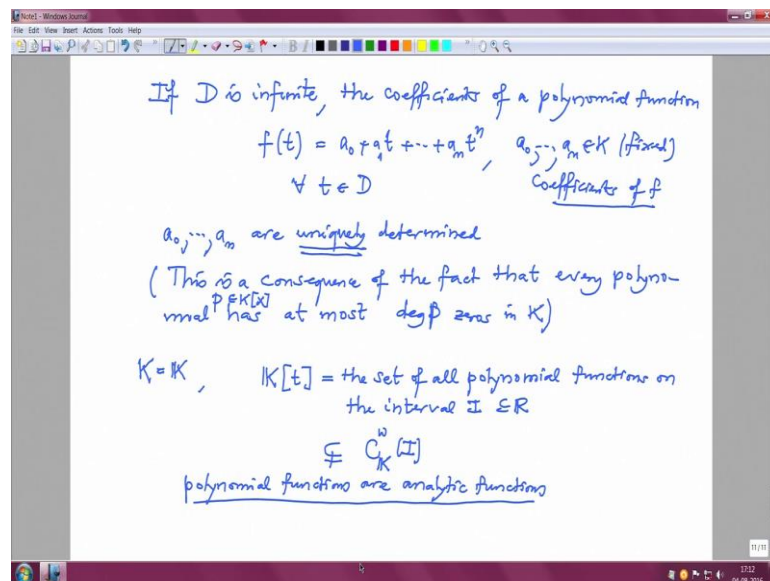 Note1 - Windows Journal
File Edit View Insert Actions Tools Help
If D is infinite, the coefficients of a polynomial function
f(t) = a₀ + a₁t + ⋯ + aₙtⁿ, a₀,⋯,aₙ ∈ K (fixed)
∀ t ∈ D coefficients of f
a₀,⋯,aₙ are uniquely determined
(This is a consequence of the fact that every polyno-
mial p ∈ K[X] has at most deg p zeros in K)
K = 𝕂, 𝕂[t] = the set of all polynomial functions on
the interval I ⊆ ℝ
⊊ C^ω_𝕂(I)
polynomial functions are analytic functions
11/11
17:12